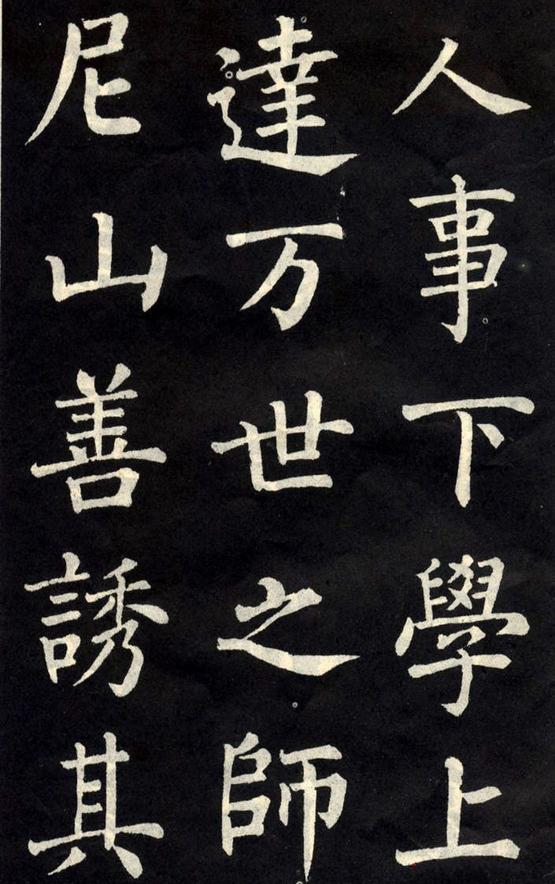 人事下學上
達万世之師
尼山善誘其